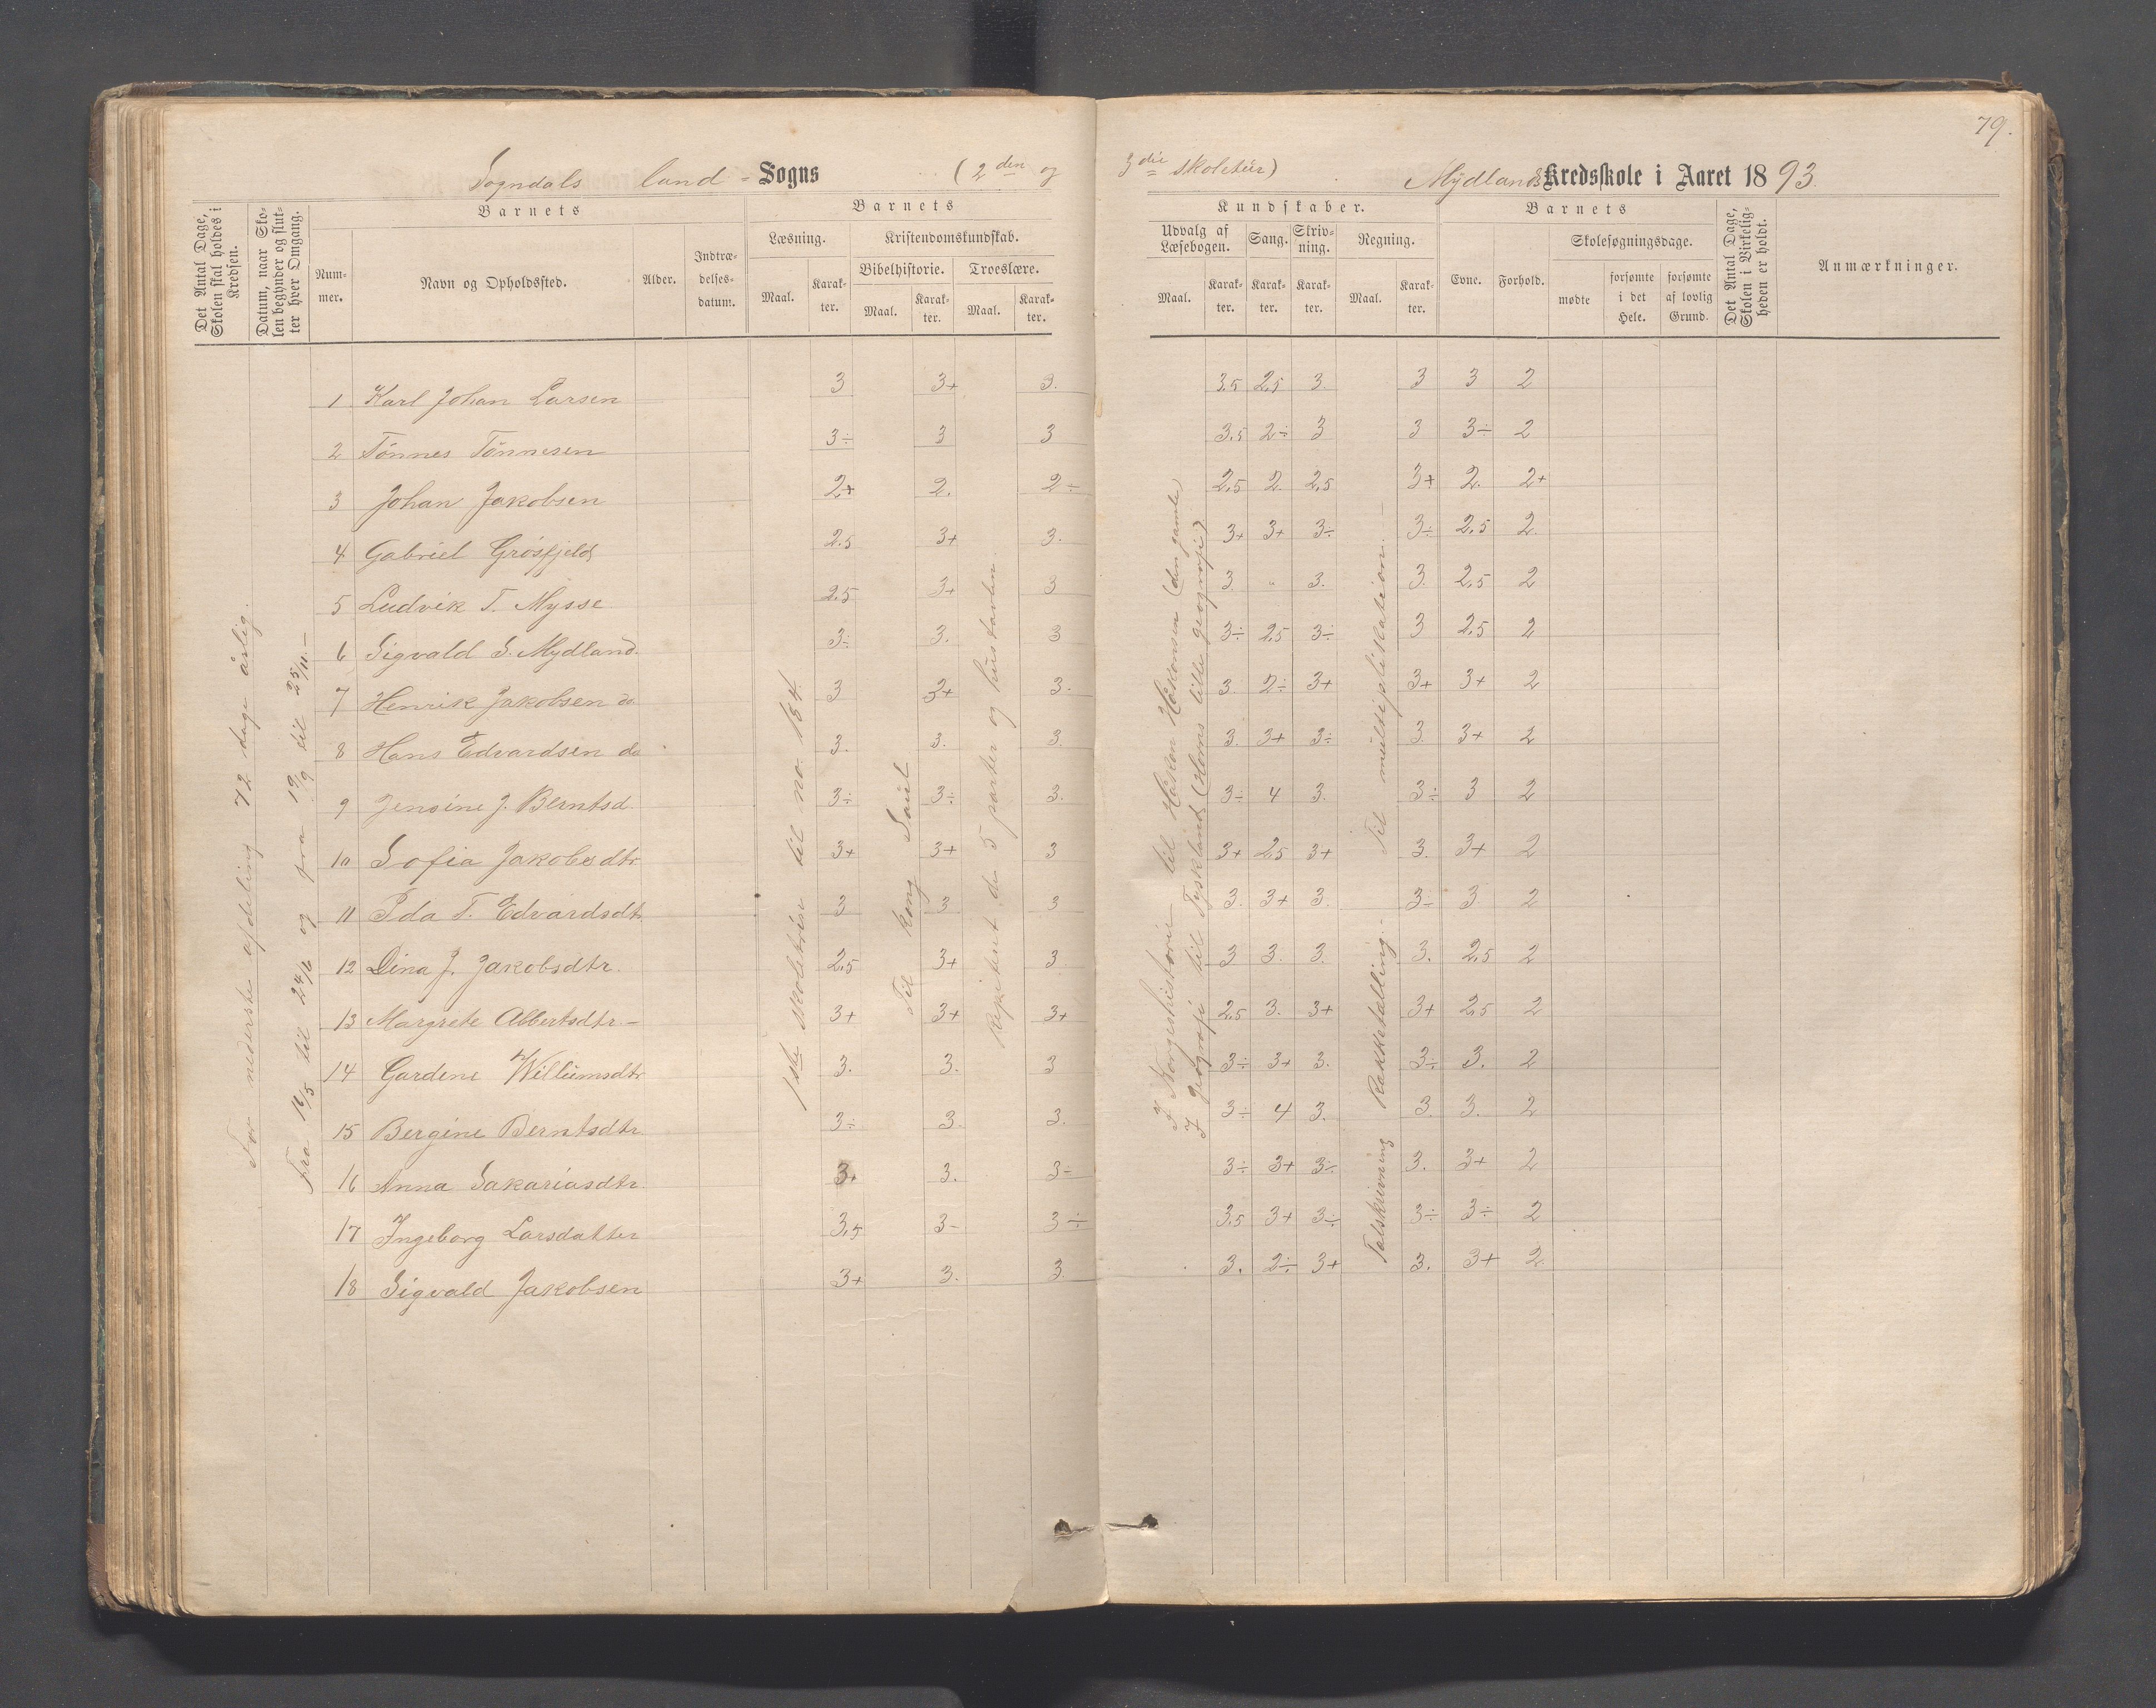 79.
Sogndals land - Sogns (2den og 3die skoletür) Mydlands Kredsskole i Aaret 1893.
Det Antal Dage, Skolen skal holdes i Kredsen.
Datum, naar Skolen begynder og slutter hver Omgang.
Barnets
Nummer.
Navn og Opholdssted.
Alder.
Indtrædelsesdatum.
Barnets
Læsning.
Maal.
Karakter.
Kristendomskundskab.
Bibelhistorie.
Maal.
Karakter.
Troeslære.
Maal.
Karakter.
Kundskaber.
Udvalg af Læsebogen.
Maal.
Karakter.
Sang.
Karakter.
Skrivning.
Karakter.
Regning.
Maal.
Karakter.
Barnets
Evne.
Forhold.
Skolesøgningsdage.
mødte
forsømte i det Hele.
forsømte af lovlig Grund.
Det Antal Dage, Skolen i Virkeligheden er holdt.
Anmærkninger.
For nederste afdeling 72 dage årlig.
Fra 16/5 til 24/6 og fra 19/9 til 25/11 -
1ste skoletrin til no. 154.
Til kong Saul
Repetert de 5 parter og hustavlen
I Norgeshistorie til Håkon Håkonsen (den gamle)
I geografi til Tyskland (Horns lille geografi)
Talskrivning Rækketælling. Til multiplikation. -
1 Karl Johan Larsen 3 3+ 3. 3.5 2.5 3. 3 3 2
2 Tönnes Tönnesen 3÷ 3 3 3.5 2÷ 3 3 3÷ 2
3 Johan Jakobsen 2+ 2. 2÷ 2.5 2 2.5 3+ 2. 2+
4 Gabriel Grösfjeld 2.5 3+ 3. 3+ 3+ 3÷ 3÷ 2.5 2.
5 Ludvik T. Mysse 2.5 3+ 3 3. 3. 3. 2.5 2
6 Sigvald S. Mydland. 3÷ 3. 3 3÷ 2.5 3÷ 3 2.5 2
7 Henrik Jakobsen do 3 3+ 3. 3. 2÷ 3+ 3+ 3+ 2
8 Hans Edvardsen do 3. 3. 3. 3. 3+ 3÷ 3. 3+ 2
9 Jensine J. Berntsd. 3÷ 3÷ 3. 3÷ 4 3. 3÷ 3 2
10 Sofia Jakobsdtr 3+ 3+ 3 3+ 2.5 3+ 3. 3+ 2
11 Ida T. Edvardsdtr 3 3 3 3. 3+ 3. 3÷ 3 2
12 Dina J. Jakobsdtr. 2.5 3+ 3 3 3. 3. 3. 2.5 2
13 Margrete Albertsdtr. - 3+ 3+ 3+ 2.5 3. 3+ 3+ 2.5 2
14 Gardine Willumsdtr 3. 3. 3 3÷ 3+ 3. 3÷ 3. 2
15 Bergine Berntsdtr. 3÷ 3. 3. 3÷ 4 3. 3. 3. 2
16 Anna Sakariasdtr. 3+ 3. 3÷ 3÷ 3+ 3÷ 3. 3+ 2
17 Ingeborg Larsdatter 3.5 3- 3÷ 3.5 3+ 3÷ 3÷ 3÷ 2
18 Sigvald Jakobsen 3+ 3. 3. 3. 2÷ 3+ 3. 3+ 2